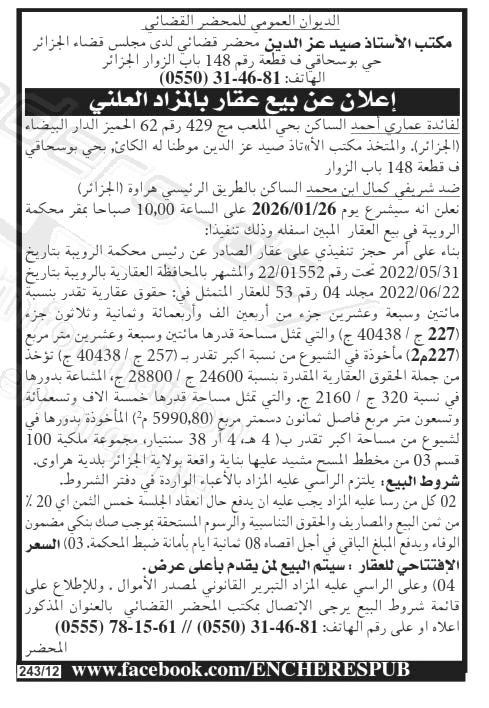 الديوان العمومي للمحضر القضائي
مكتب الأستاذ صيد عز الدين محضر قضائي لدى مجلس قضاء الجزائر
حي بوسحاقي ف قطعة رقم 148 باب الزوار الجزائر
الهاتف: 81-46-31 (0550)
إعلان عن بيع عقار بالمزاد العلني
لفائدة عماري أحمد الساكن بحي الملعب مج 429 رقم 62 الحميز الدار البيضاء
(الجزائر). والمتخذ مكتب الأ»تاذ صيد عز الدين موطنا له الكائ: بحي بوسحاقي
ف قطعة 148 باب الزوار
ضد شريفي كمال ابن محمد الساكن بالطريق الرئيسي هراوة (الجزائر)
نعلن انه سيشرع يوم 2026/01/26 على الساعة 10,00 صباحا بمقر محكمة
الرويبة في بيع العقار المبين اسفله وذلك تنفيذا:
بناء على أمر حجز تنفيذي على عقار الصادر عن رئيس محكمة الرويبة بتاريخ
2022/05/31 تحت رقم 22/01552 والمشهر بالمحافظة العقارية بالرويبة بتاريخ
2022/06/22 مجلد 04 رقم 53 للعقار المتمثل في: حقوق عقارية تقدر بنسبة
مائتين وسبعة وعشرين جزء من أربعين الف وأربعمائة وثمانية وثلاثون جزء
(227 ج / 40438 ج) والتي تمثل مساحة قدرها مائتين وسبعة وعشرين متر مربع
(227م2) مأخوذة في الشيوع من نسبة اكبر تقدر بـ (257 ج / 40438 ج) تؤخذ
من جملة الحقوق العقارية المقدرة بنسبة 24600 ج / 28800 ج، المشاعة بدورها
في نسبة 320 ج / 2160 ج. والتي تمثل مساحة قدرها خمسة الاف وتسعمائة
وتسعون متر مربع فاصل ثمانون دسمتر مربع (5990,80 م2) المأخوذة بدورها في
لشيوع من مساحة اكبر تقدر ب( 4 هـ، 4 آر 38 سنتيار، مجموعة ملكية 100
قسم 03 من مخطط المسح مشيد عليها بناية واقعة بولاية الجزائر بلدية هراوى.
شروط البيع: يلتزم الراسي عليه المزاد بالأعباء الواردة في دفتر الشروط.
02 كل من رسا عليه المزاد يجب عليه ان يدفع حال انعقاد الجلسة خمس الثمن اي 20 ٪
من ثمن البيع والمصاريف والحقوق التناسبية والرسوم المستحقة بموجب صك بنكي مضمون
الوفاء ويدفع المبلغ الباقي في أجل اقصاه 08 ثمانية ايام بأمانة ضبط المحكمة. 03) السعر
الإفتتاحي للعقار : سيتم البيع لمن يقدم بأعلى عرض.
04) وعلى الراسي عليه المزاد التبرير القانوني لمصدر الأموال . وللإطلاع على
قائمة شروط البيع يرجى الإتصال بمكتب المحضر القضائي بالعنوان المذكور
اعلاه او على رقم الهاتف: 81-46-31 (0550) // 61-15-78 (0555)
المحضر
243/12 www.facebook.com/ENCHERESPUB